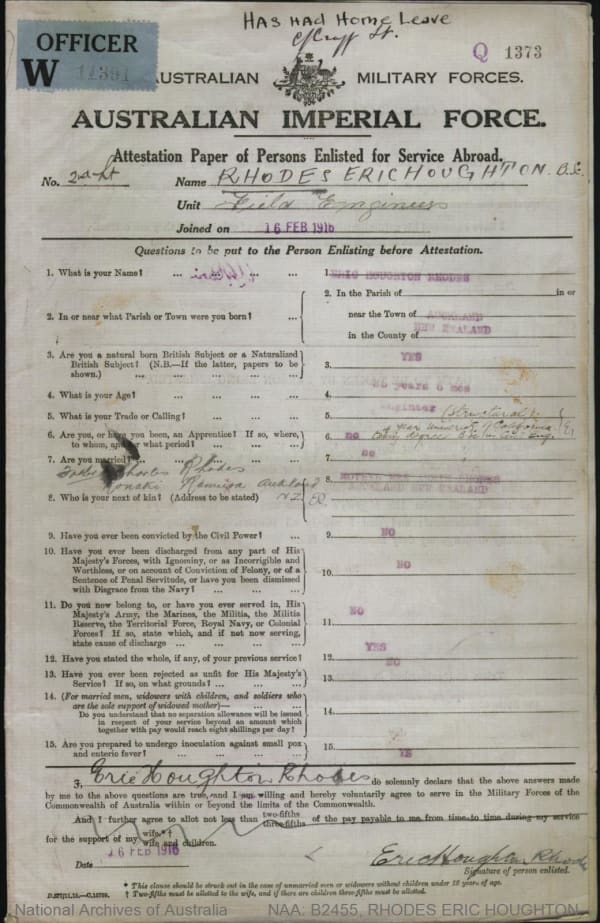 HAS HAD HOME LEAVE
OFFICER
W 11391
Q 1373
AUSTRALIAN MILITARY FORCES.
AUSTRALIAN IMPERIAL FORCE.
Attestation Paper of Persons Enlisted for Service Abroad.
No. 2nd Lt Name RHODES ERIC HOUGHTON. B.Sc.
Unit Field Engineers
Joined on 16 FEB 1916
Questions to be put to the Person Enlisting before Attestation.
1. What is your Name? ... ... ... ... 1. ERIC HOUGHTON RHODES
2. In or near what Parish or Town were you born? ... 2. In the Parish of in or
near the Town of AUCKLAND
in the County of NEW ZEALAND
3. Are you a natural born British Subject or a Naturalized
British Subject? (N.B.—If the latter, papers to be
shown.) ... ... ... ... ... 3. YES
4. What is your Age? ... ... ... ... 4. years 6 mos
5. What is your Trade or Calling? ... ... ... 5. Engineer (Structural)
6. Are you, or have you been, an Apprentice? If so, where,
to whom, and for what period? ... ... ... 6. no 4 year University of California
7. Are you married? 7. No
Charles Rhodes
Remuera Auckland N.Z.
8. Who is your next of kin? (Address to be stated) 8. MOTHER MRS RHODES
AUCKLAND NEW ZEALAND
9. Have you ever been convicted by the Civil Power? ... 9. NO
10. Have you ever been discharged from any part of His
Majesty's Forces, with Ignominy, or as Incorrigible and
Worthless, or on account of Conviction of Felony, or of a
Sentence of Penal Servitude, or have you been dismissed
with Disgrace from the Navy? ... ... ... 10. NO
11. Do you now belong to, or have you ever served in, His
Majesty's Army, the Marines, the Militia, the Militia
Reserve, the Territorial Force, Royal Navy, or Colonial
Forces? If so, state which, and if not now serving,
state cause of discharge ... ... ... ... 11. NO
12. Have you stated the whole, if any, of your previous service? 12. YES
13. Have you ever been rejected as unfit for His Majesty's
Service? If so, on what grounds? ... ... ... 13. NO
14. (For married men, widowers with children, and soldiers who
are the sole support of widowed mother)—
Do you understand that no separation allowance will be issued
in respect of your service beyond an amount which
together with pay would reach eight shillings per day? 14.
15. Are you prepared to undergo inoculation against small pox
and enteric fever? ... ... ... ... 15. YES
I, Eric Houghton Rhodes do solemnly declare that the above answers made
by me to the above questions are true, and I am willing and hereby voluntarily agree to serve in the Military Forces of the
Commonwealth of Australia within or beyond the limits of the Commonwealth.
And I further agree to allot not less than two-fifths three-fifths of the pay payable to me from time to time during my service
for the support of my wife.*† wife and children.
Date 16 FEB 1916
Eric Houghton Rhodes
Signature of person enlisted.
* This clause should be struck out in the case of unmarried men or widowers without children under 18 years of age.
† Two-fifths must be allotted to the wife, and if there are children three-fifths must be allotted.
National Archives of Australia NAA: B2455, RHODES ERIC HOUGHTON